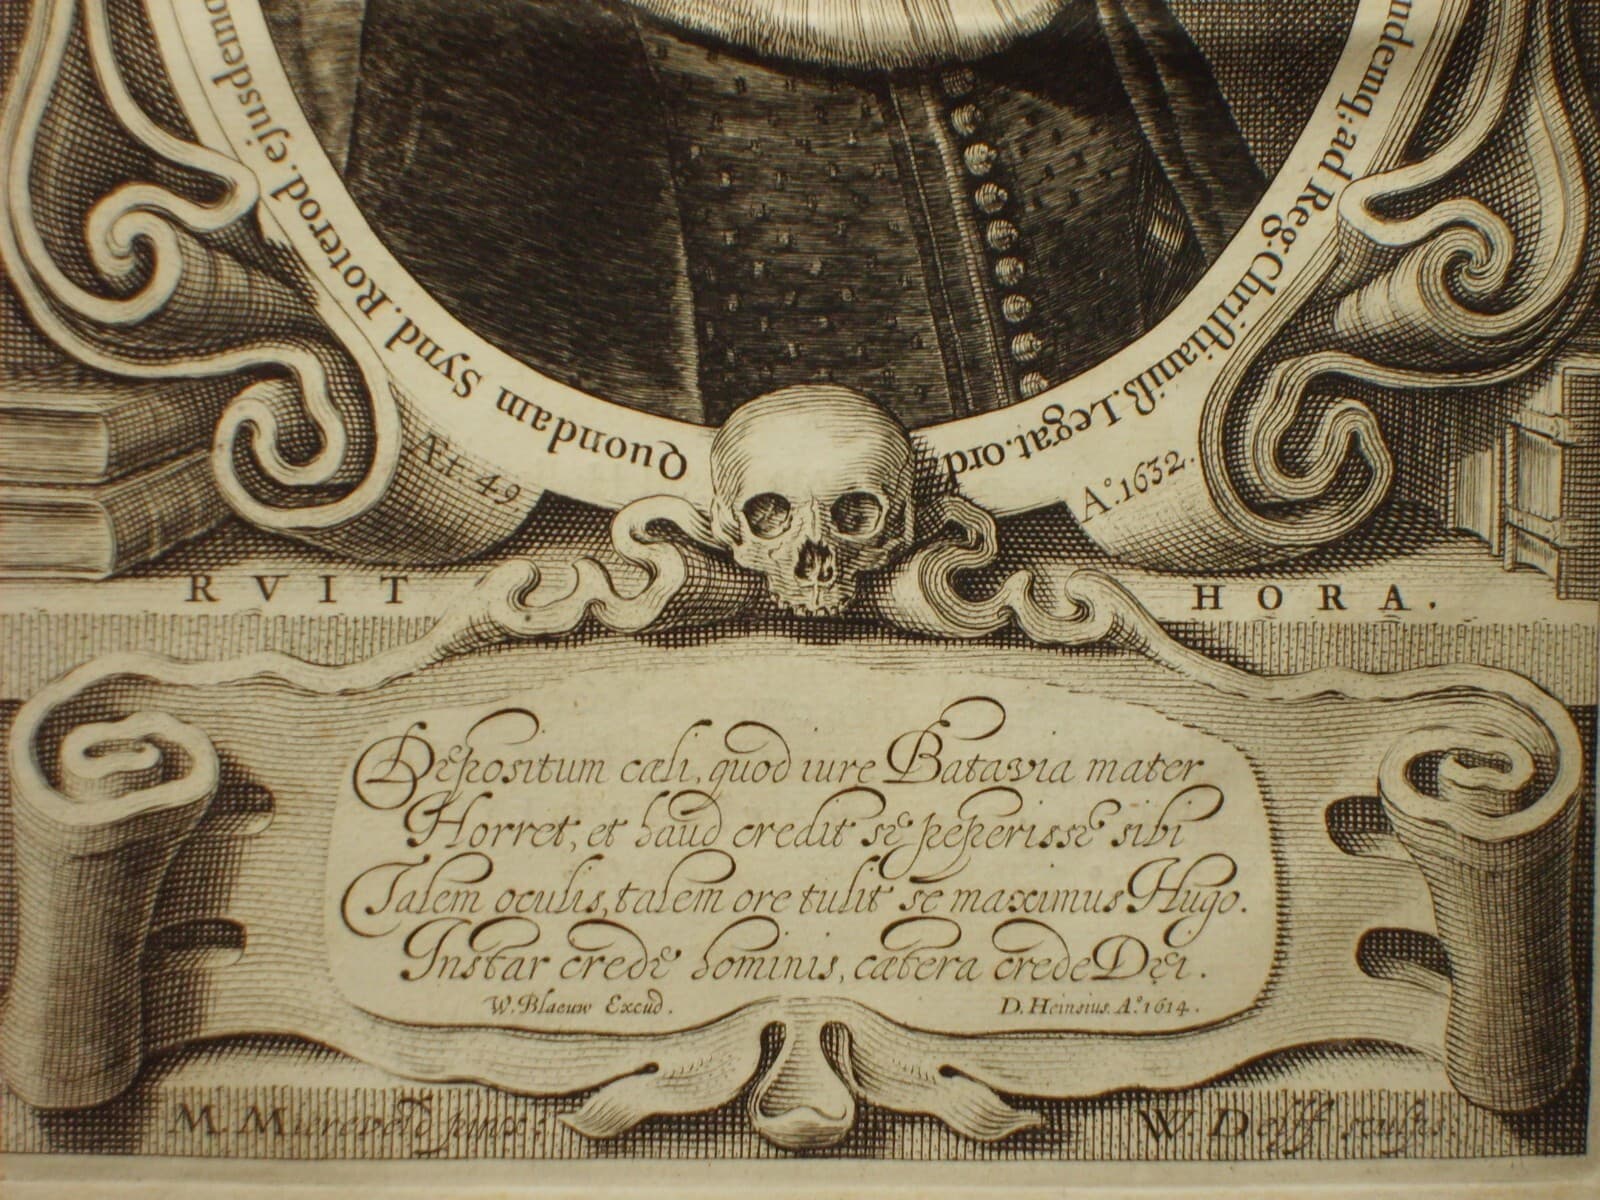 Quondam Synd. Roterod. ejusdemq
udemq; ad Reg. Christianiss. Legat. ord
Æt. 49
A°. 1632.
RVIT HORA.
Depositum cæli, quod iure Batavia mater
Horret, et haud credit se peperisse sibi
Talem oculis, talem ore tulit se maximus Hugo.
Instar crede hominis, cætera crede Dei.
W. Blaeuw Excud. D. Heinsius. A°. 1614.
M. Miereveld pinx: W. Delff sculps.